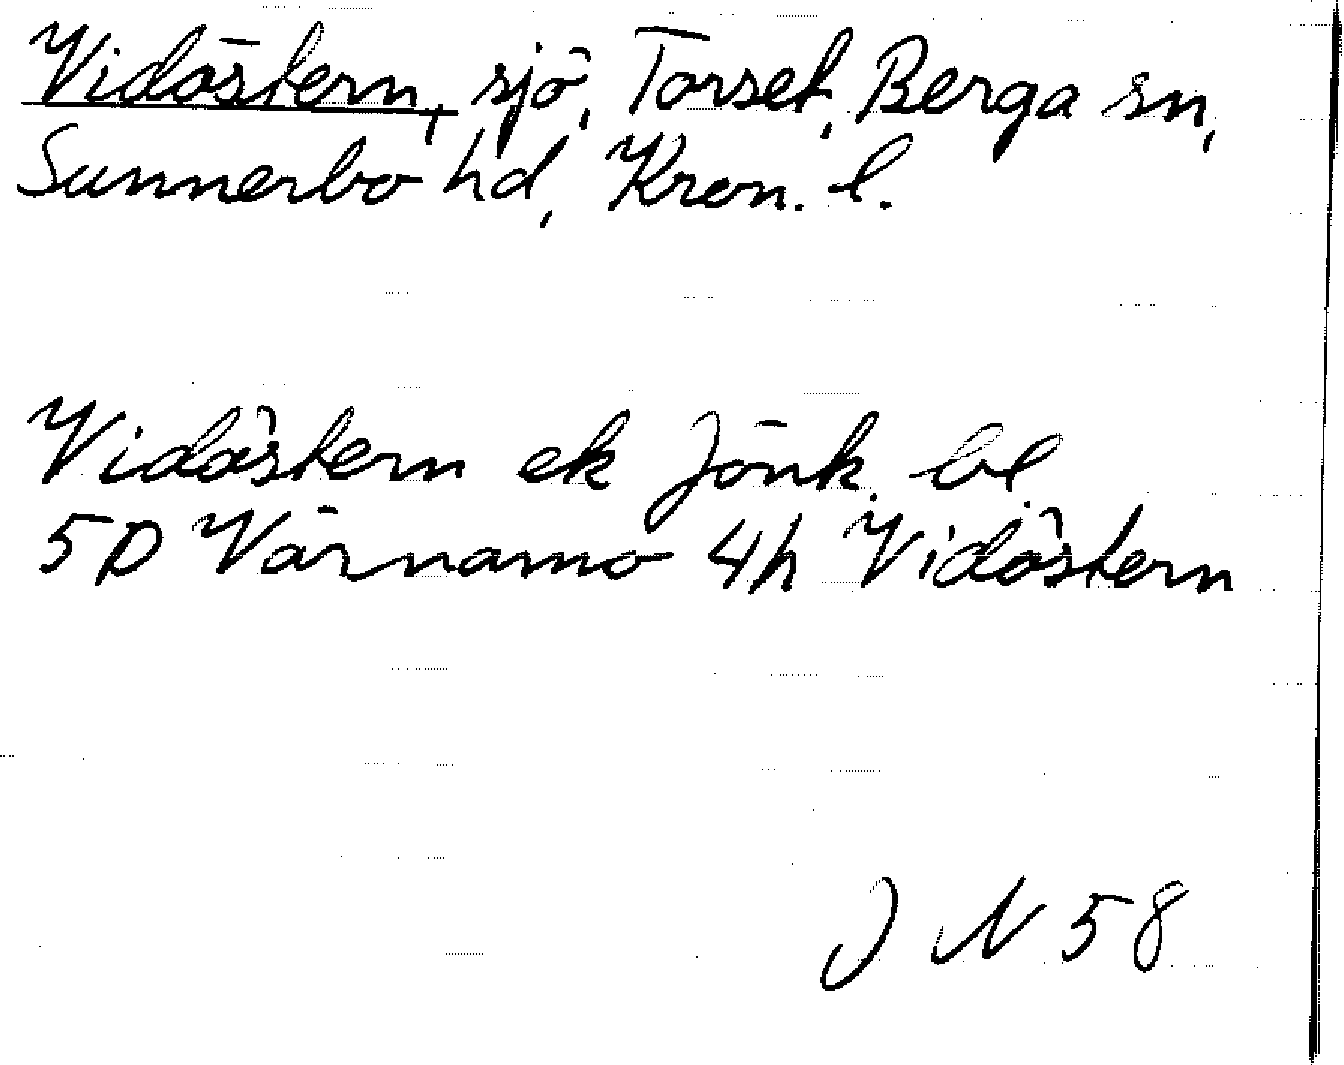 Vidöstern, sjö, Torset, Berga sn,
Sunnerbo hd, Kron. l.
Vidöstern ek Jönk. bl
5D Värnamo 4h Vidöstern
J N 58